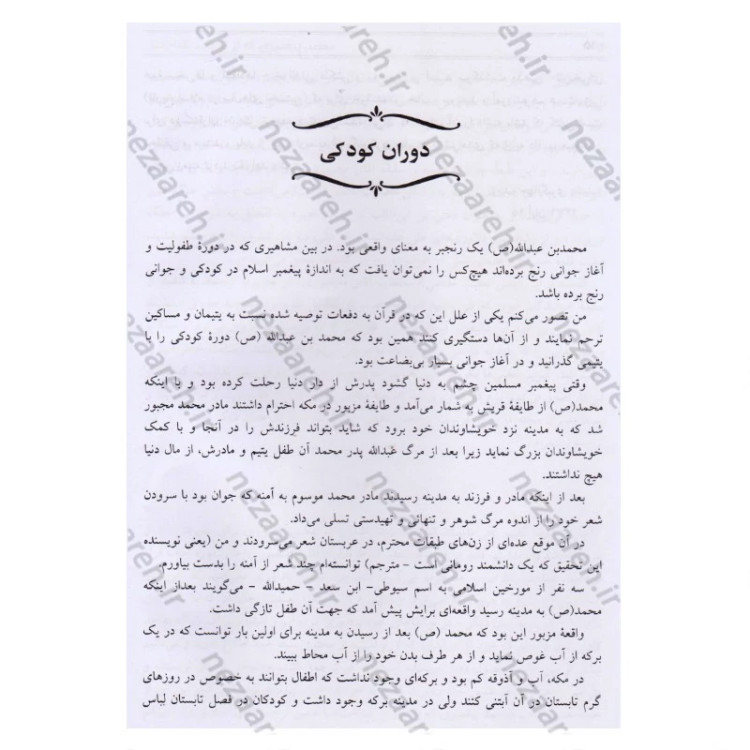 دوران کودکی
محمدبن عبدالله(ص) یک رنجبر به معنای واقعی بود. در بین مشاهیری که در دورهٔ طفولیت و
آغاز جوانی رنج برده‌اند هیچ‌کس را نمی‌توان یافت که به اندازهٔ پیغمبر اسلام در کودکی و جوانی
رنج برده باشد.
من تصور می‌کنم یکی از علل این که در قرآن به دفعات توصیه شده نسبت به یتیمان و مساکین
ترحم نمایند و از آن‌ها دستگیری کنند همین بود که محمد بن عبدالله (ص) دورهٔ کودکی را با
یتیمی گذرانید و در آغاز جوانی بسیار بی‌بضاعت بود.
وقتی پیغمبر مسلمین چشم به دنیا گشود پدرش از دار دنیا رحلت کرده بود و با اینکه
محمد(ص) از طایفهٔ قریش به شمار می‌آمد و طایفهٔ مزبور در مکه احترام داشتند مادر محمد مجبور
شد که به مدینه نزد خویشاوندان خود برود که شاید بتواند فرزندش را در آنجا و با کمک
خویشاوندان بزرگ نماید زیرا بعد از مرگ عبدالله پدر محمد آن طفل یتیم و مادرش، از مال دنیا
هیچ نداشتند.
بعد از اینکه مادر و فرزند به مدینه رسیدند مادر محمد موسوم به آمنه که جوان بود با سرودن
شعر خود را از اندوه مرگ شوهر و تنهائی و تهیدستی تسلی می‌داد.
در آن موقع عده‌ای از زن‌های طبقات محترم، در عربستان شعر می‌سرودند و من (یعنی نویسنده
این تحقیق که یک دانشمند رومانی است - مترجم) توانسته‌ام چند شعر از آمنه را بدست بیاورم.
سه نفر از مورخین اسلامی به اسم سیوطی- ابن سعد - حمیدالله - می‌گویند بعداز اینکه
محمد(ص) به مدینه رسید واقعه‌ای برایش پیش آمد که جهت آن طفل تازگی داشت.
واقعهٔ مزبور این بود که محمد (ص) بعد از رسیدن به مدینه برای اولین بار توانست که در یک
برکه از آب غوص نماید و از هر طرف بدن خود را از آب محاط ببیند.
در مکه، آب و آذوقه کم بود و برکه‌ای وجود نداشت که اطفال بتوانند به خصوص در روزهای
گرم تابستان در آن آبتنی کنند ولی در مدینه برکه وجود داشت و کودکان در فصل تابستان لباس
nezaareh.ir